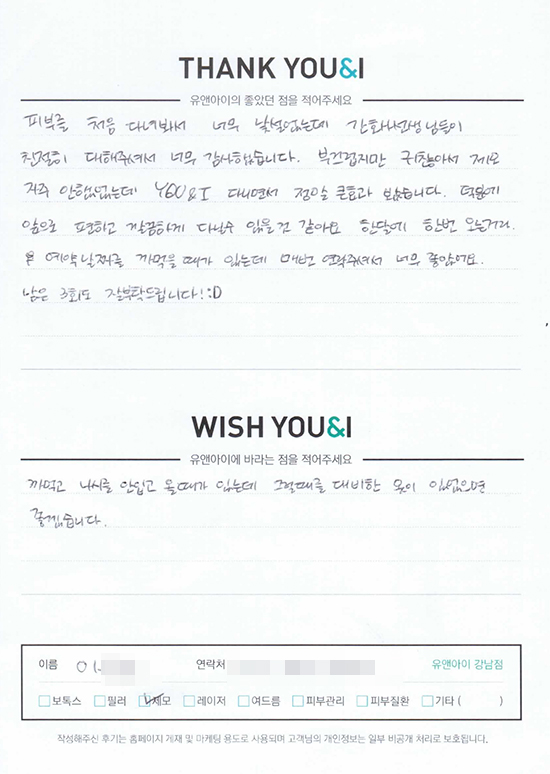 THANK YOU&I
유앤아이의 좋았던 점을 적어주세요
피부를 처음 다녀봐서 너무 낯설었는데 간호사선생님들이
친절히 대해주셔서 너무 감사했습니다. 부끄럽지만 귀찮아서 제모
자주 안했었는데 YOU&I 다니면서 정말 큰효과 봤습니다. 덕분에
앞으로 편하고 깔끔하게 다닐수 있을것 같아요 한달에 한번 오는거라
예약날짜를 까먹을 때가 있는데 매번 연락주셔서 너무 좋았어요.
남은 3회도 잘부탁드립니다! :D
WISH YOU&I
유앤아이에 바라는 점을 적어주세요
까먹고 나시를 안입고 올때가 있는데 그럴때를 대비한 옷이 있었으면
좋겠습니다.
이름 이 연락처 유앤아이 강남점
보톡스 필러 제모 레이저 여드름 피부관리 피부질환 기타 ( )
작성해주신 후기는 홈페이지 게재 및 마케팅 용도로 사용되며 고객님의 개인정보는 일부 비공개 처리로 보호됩니다.